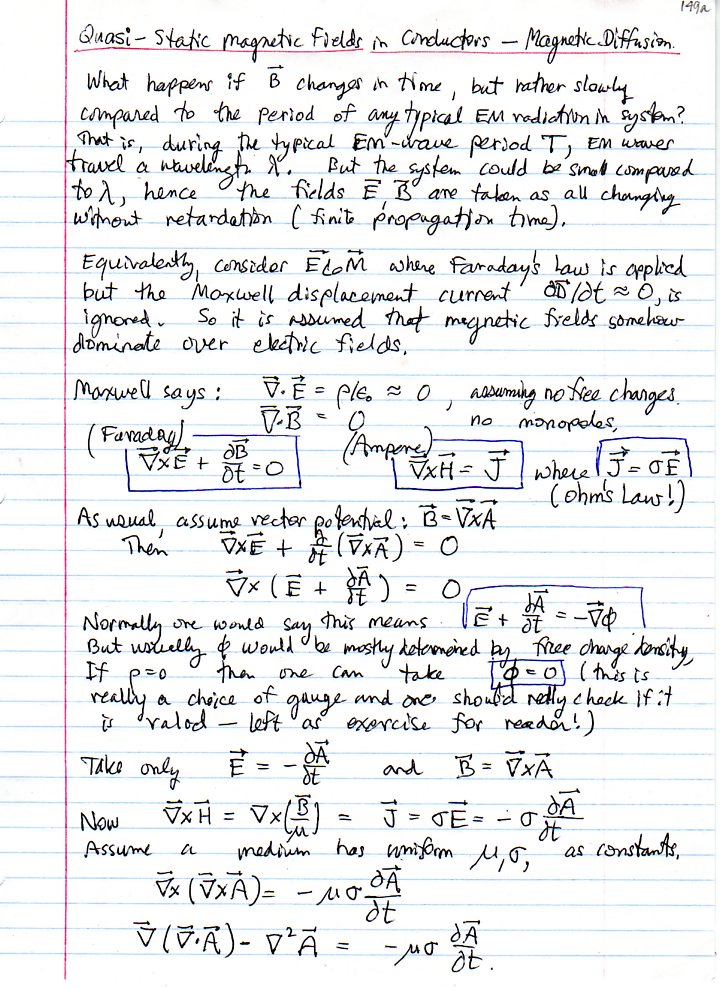 149a
Quasi-Static magnetic Fields in Conductors — Magnetic Diffusion.
What happens if B⃗ changes in time, but rather slowly
compared to the period of any typical EM radiation in system?
That is, during the typical EM-wave period T, EM waves
travel a wavelength λ. But the system could be small compared
to λ, hence the fields E⃗, B⃗ are taken as all changing
without retardation (finite propagation time).
Equivalently, consider E⃗ & M⃗ where Faraday's Law is applied
but the Maxwell displacement current ∂D⃗/∂t ≈ 0, is
ignored. So it is assumed that magnetic fields somehow
dominate over electric fields.
Maxwell says: ∇⃗·E⃗ = ρ/ε₀ ≈ 0, assuming no free charges.
∇⃗·B⃗ = 0 no monopoles,
(Faraday) (Ampere)
∇⃗×E⃗ + ∂B⃗/∂t = 0 ∇⃗×H⃗ = J⃗ where J⃗ = σE⃗
(Ohm's Law!)
As usual, assume vector potential: B⃗ = ∇⃗×A⃗
Then ∇⃗×E⃗ + ∂/∂t (∇⃗×A⃗) = 0
∇⃗×(E⃗ + ∂A⃗/∂t) = 0
Normally one would say this means E⃗ + ∂A⃗/∂t = -∇⃗ϕ
But usually ϕ would be mostly determined by free charge density,
If ρ=0 then one can take ϕ = 0 (this is
really a choice of gauge and one should really check if it
is valid — left as exercise for reader!)
Take only E⃗ = -∂A⃗/∂t and B⃗ = ∇⃗×A⃗
Now ∇⃗×H⃗ = ∇×(B⃗/μ) = J⃗ = σE⃗ = -σ ∂A⃗/∂t
Assume a medium has uniform μ, σ, as constants.
∇⃗×(∇⃗×A⃗) = -μσ ∂A⃗/∂t
∇⃗(∇⃗·A⃗) - ∇²A⃗ = -μσ ∂A⃗/∂t.